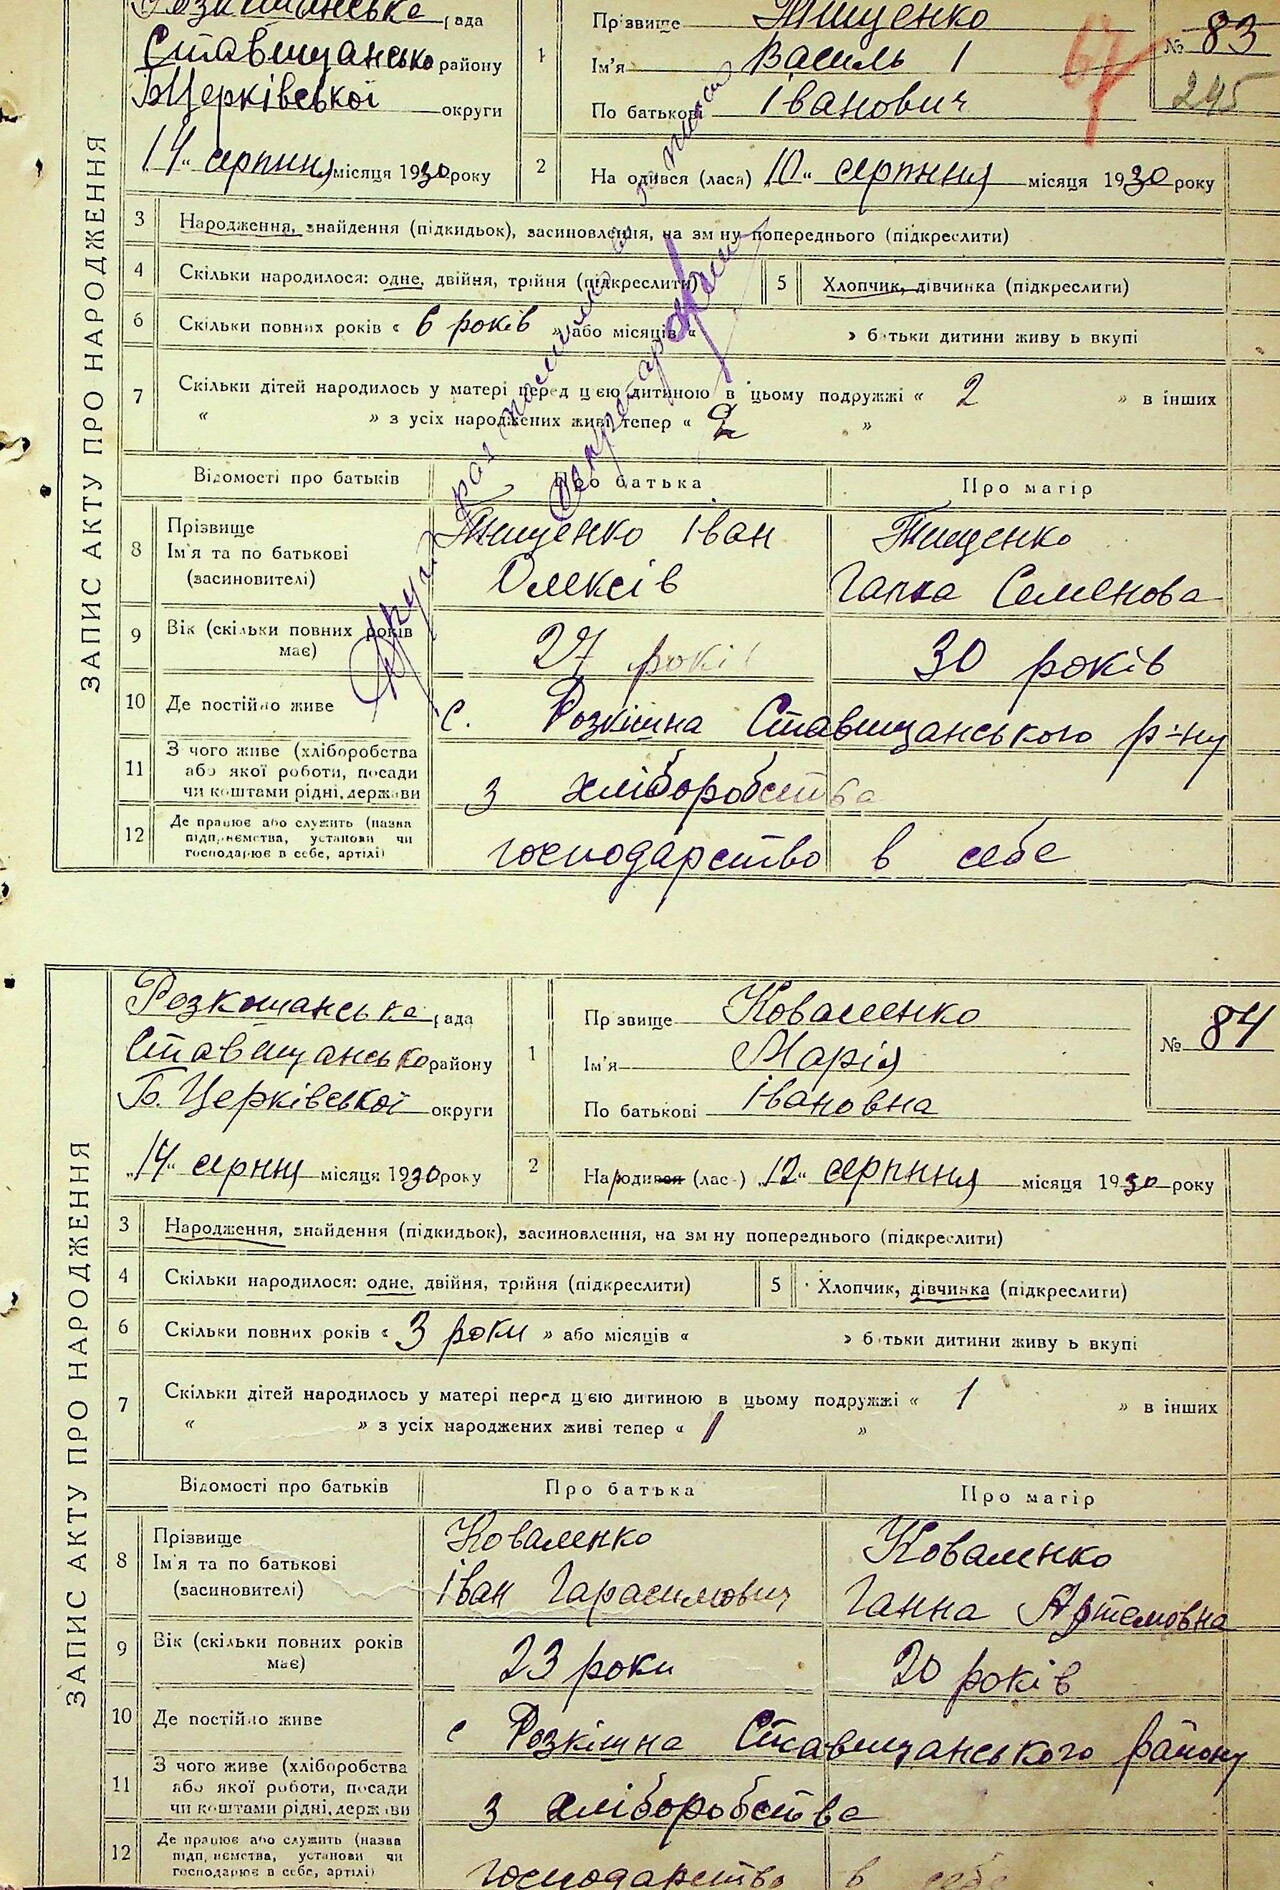 ЗАПИС АКТУ ПРО НАРОДЖЕННЯ
Розкошанська рада
Ставищансько району
Б Церківської округи
14 серпння місяця 1930 року
1
Прізвище Тищенко
Ім'я Василь 1
По батькові Іванович
№ 83
67
245
2 На одився (лася) 10 " серпння місяця 1930 року
3 Народження, знайдення (підкидьок), засиновлення, на зм ну попереднього (підкреслити)
4 Скільки народилося: одне, двійня, трійня (підкреслити) 5 Хлопчик, дівчинка (підкреслити)
6 Скільки повних років « 6 років » або місяців « » батьки дитини живу ь вкупі
7 Скільки дітей народилось у матері перед цією дитиною в цьому подружжі « 2 » в інших
« » з усіх народжених живі тепер « 2 »
Відомості про батьків Про батька Про матір
8 Прізвище
Ім'я та по батькові
(засиновителі)
Тищенко Іван
Олексів
Тищенко
Гапка Семенова
9 Вік (скільки повних років
має)
27 років 30 років
10 Де постійно живе с. Розкішна Ставищанського р-ну
11 З чого живе (хліборобства
або якої роботи, посади
чи коштами рідні, держави
з хліборобства
12 Де працює або служить (назва
підприємства, установи чи
господарює в себе, артілі)
господарство в себе
ЗАПИС АКТУ ПРО НАРОДЖЕННЯ
Розкошанська рада
Ставищансько району
Б. Церківської округи
„14" серпня місяця 1930 року
1
Прізвище Коваленко
Ім'я Марія
По батькові Івановна
№ 84
2 Народився (лас-) „12" серпння місяця 1930 року
3 Народження, знайдення (підкидьок), засиновлення, на зм ну попереднього (підкреслити)
4 Скільки народилося: одне, двійня, трійня (підкреслити) 5 Хлопчик, дівчинка (підкреслити)
6 Скільки повних років « 3 роки » або місяців « » батьки дитини живу ь вкупі
7 Скільки дітей народилось у матері перед цією дитиною в цьому подружжі « 1 » в інших
« » з усіх народжених живі тепер « 1 »
Відомості про батьків Про батька Про матір
8 Прізвище
Ім'я та по батькові
(засиновителі)
Коваленко
Іван Гарасимович
Коваленко
Ганна Артемовна
9 Вік (скільки повних років
має)
23 роки 20 років
10 Де постійно живе с Розкішна Ставищанського району
11 З чого живе (хліборобства
або якої роботи, посади
чи коштами рідні, держави
з хліборобства
12 Де працює або служить (назва
підприємства, установи чи
господарює в себе, артілі)
господарство в себе